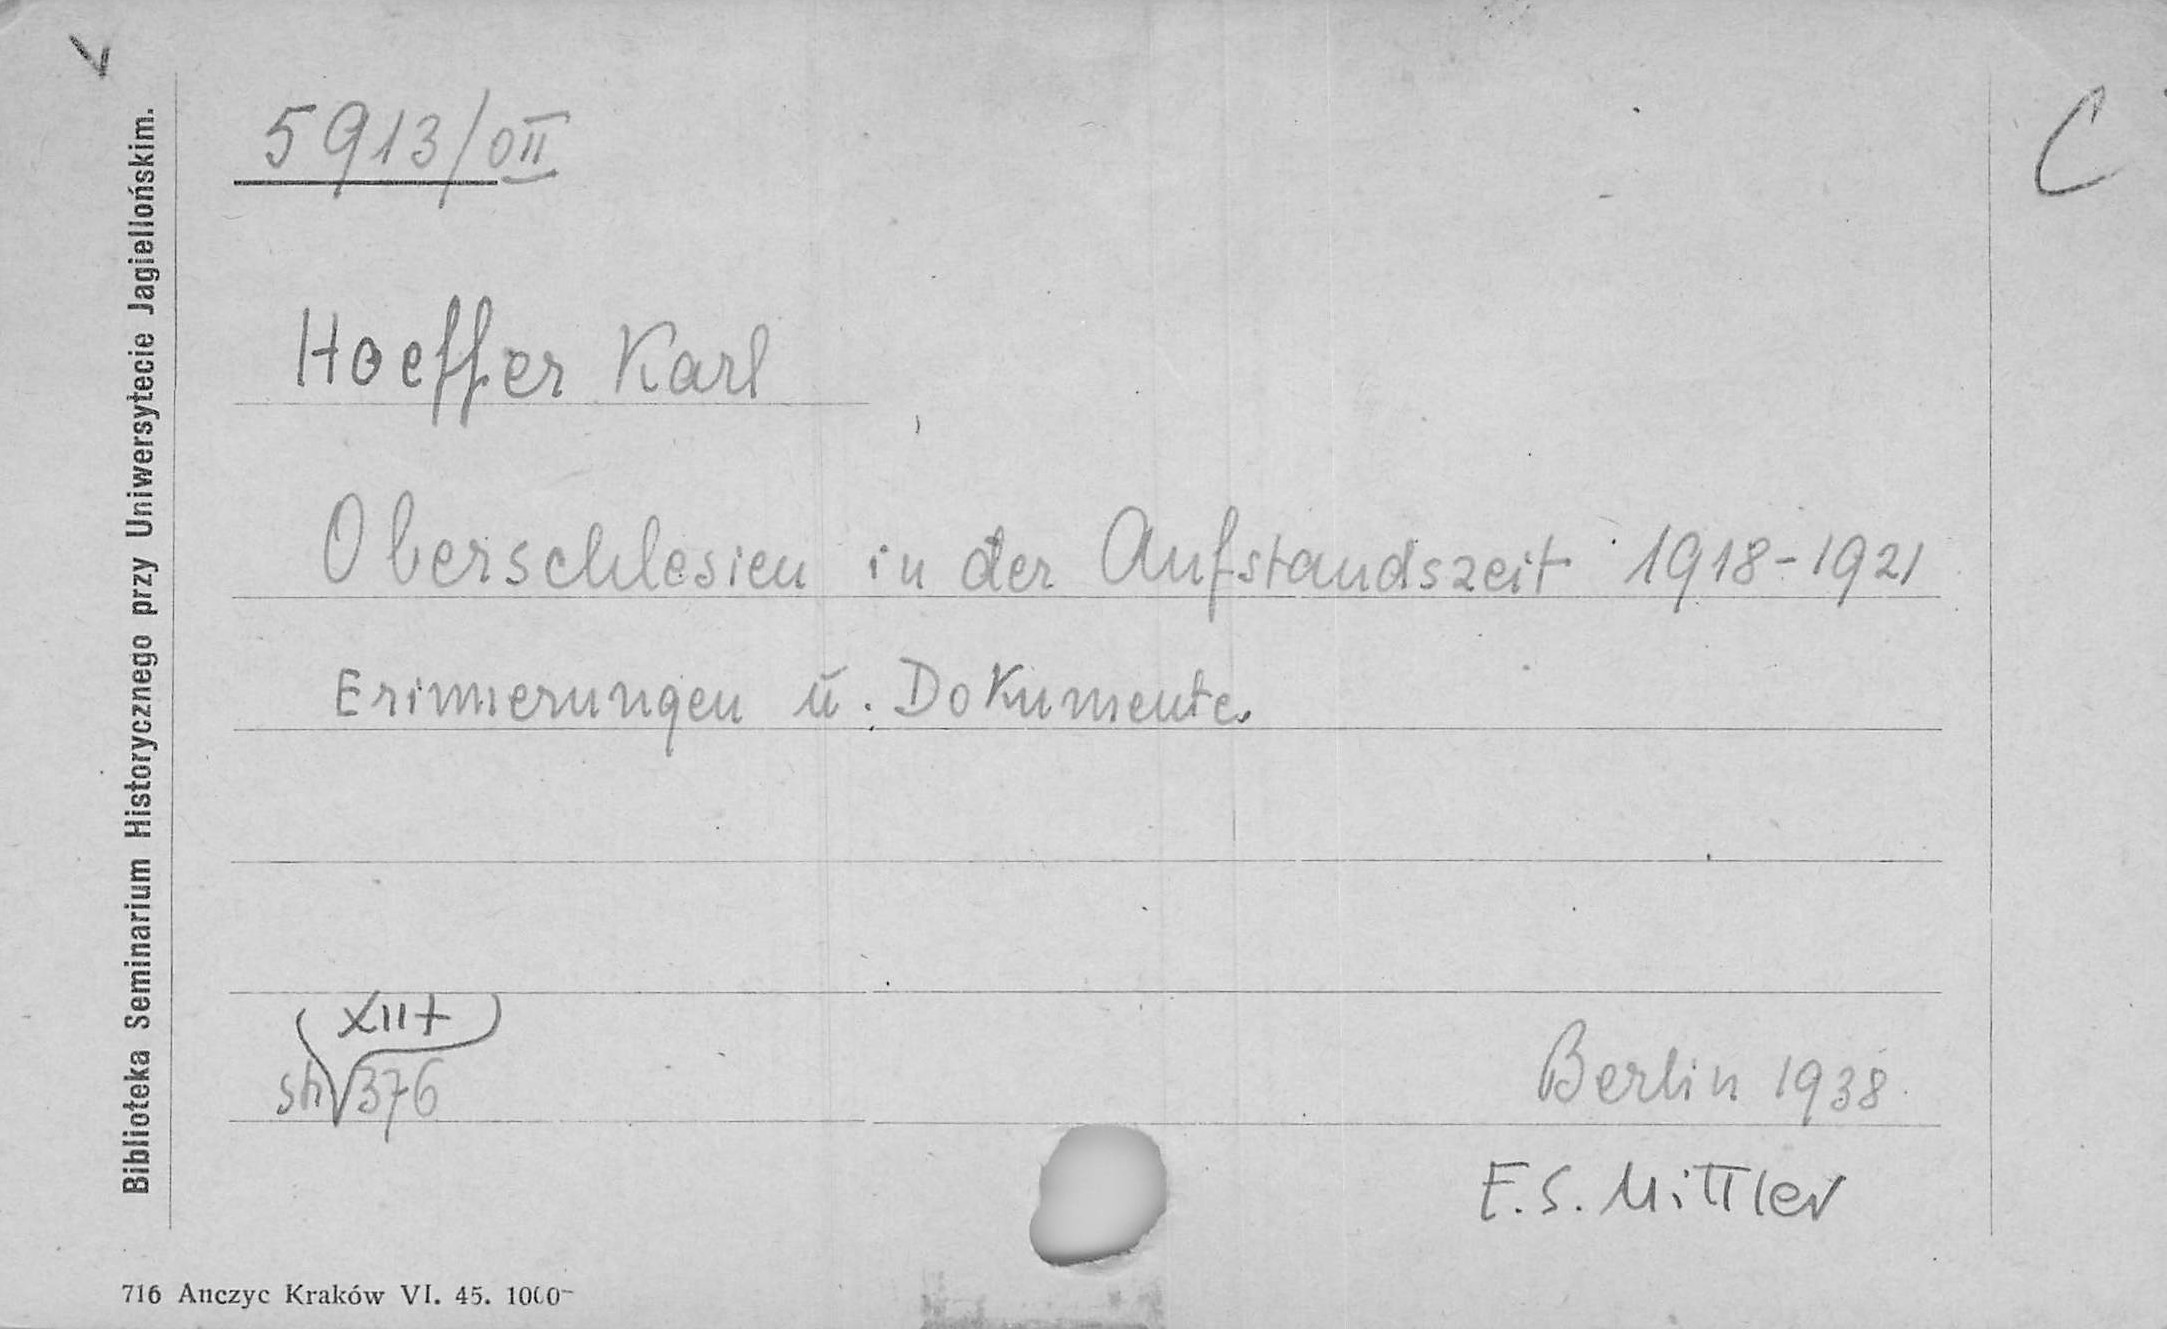 V
5913/OII
C
Biblioteka Seminarium Historycznego przy Uniwersytecie Jagiellońskim.
Hoeffer Karl
Oberschlesien in der Aufstandszeit 1918-1921
Erinnerungen ū. Dokumente.
(XII+)
376
Berlin 1938.
E.S. Mittler
716 Anczyc Kraków VI. 45. 1000